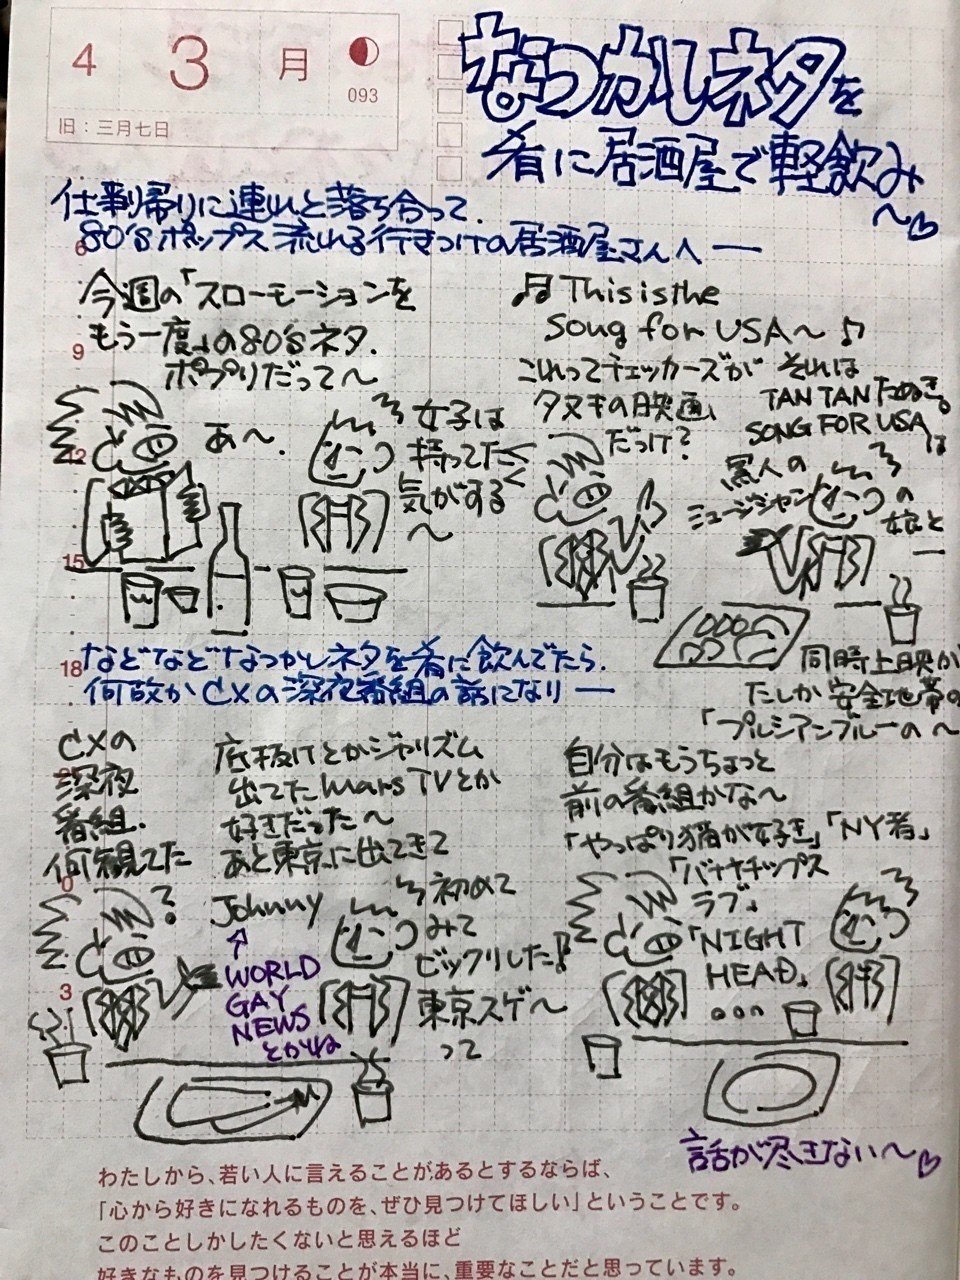 4 3 月
093
旧：三月七日
なつかしネタを
肴に居酒屋で軽飲み
〜♡
仕事帰りに連れと落ち合って、
80'sポップス流れる行きつけの居酒屋さんへ ー
今週の「スローモーションを
もう一度」の80'sネタ、
ポプリだって〜
あ〜、
女子は
持ってた
気がする
〜
♫ This is the
Song for USA〜♪
これってチェッカーズが
タヌキの映画
だっけ?
それは
TAN TAN たぬき。
SONG FOR USA は
黒人の
ミュージシャン
の
奴と
ー
同時上映が
たしか安全地帯の
「プルシアンブルーの〜
などなどなつかしネタを肴に飲んでたら、
何故かCXの深夜番組の話になり ー
CXの
深夜
番組、
何観てた
?
底抜けとかジャリズム
出てたmars TVとか
好きだった〜
あと東京に出てきて
Johnny
↑
WORLD
GAY
NEWS
とかね
初めて
みて
ビックリした!
東京スゲ〜
って
自分はもうちょっと
前の番組かな〜
「やっぱり猫が好き」「NY者」
「バナナチップス
ラブ」
「NIGHT
HEAD」
...
話が尽きない〜♡
6
9
12
15
18
0
3
わたしから、若い人に言えることがあるとするならば、
「心から好きになれるものを、ぜひ見つけてほしい」ということです。
このことしかしたくないと思えるほど
好きなものを見つけることが本当に、重要なことだと思っています。